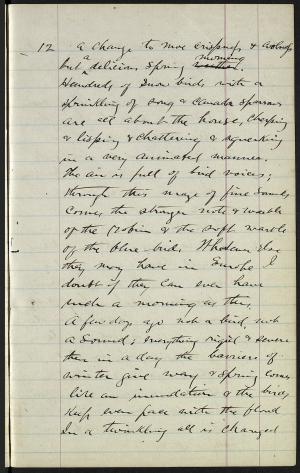 12 a change to more crispness & coolness
but a delicious spring morning
Hundreds of Snow birds with a
sprinkling of song & Canada sparrows
are all about the house, chirping
& lisping & chattering & squeaking
in a very animated manner.
The air is full of bird voices;
through this maze of fine sounds
comes the stronger note & warble
of the Robin & the soft warble
of the blue-bird. Whatever else
they may have in Europe I
doubt if they can ever have
such a morning as this,
A few days ago not a bird, not
a sound; everything rigid & severe
then in a day the barriers of
winter give way & spring comes
like an inundation & the birds
keep even pace with the flood
In a twinkling all is changed